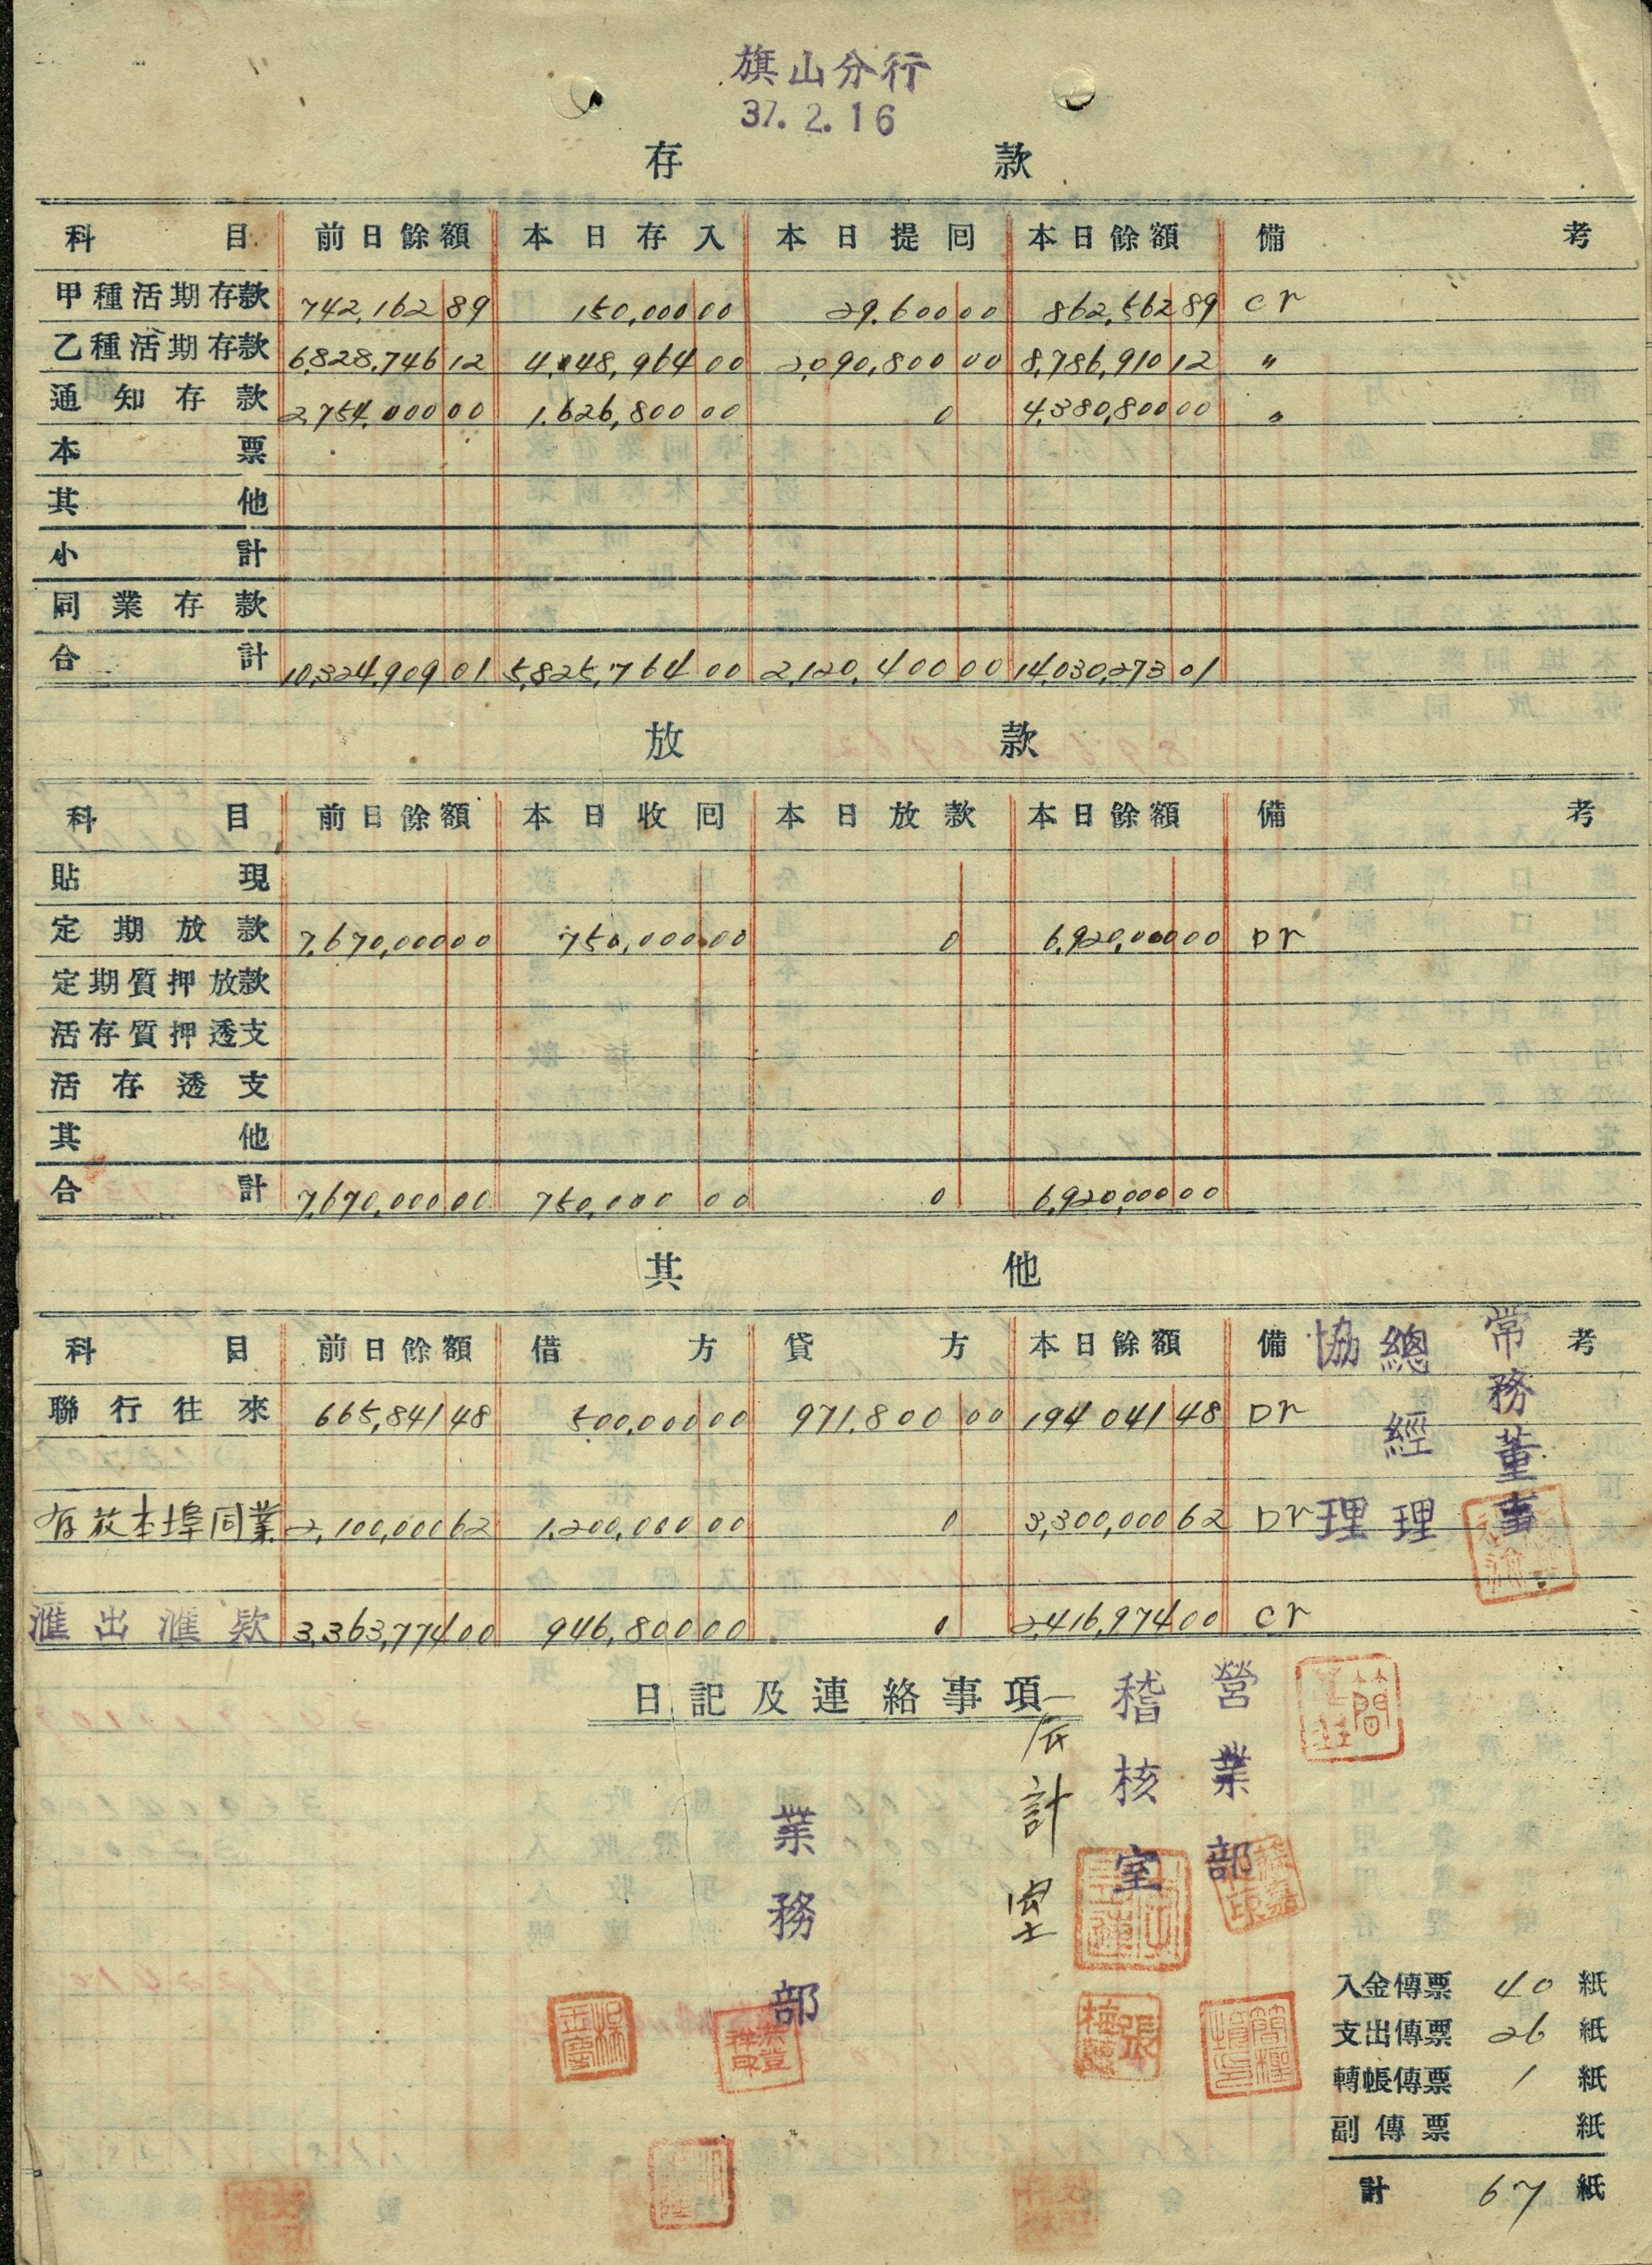 旗山分行
37.2.16
存款
科目 前日餘額 本日存入 本日提囘 本日餘額 備考
甲種活期存款 742,162 89 150,000 00 29,600 00 862,562 89 cr
乙種活期存款 6,828,746 12 4,048,964 00 2,090,800 00 8,786,910 12 〃
通知存款 2,754,000 00 1,626,800 00 0 4,380,800 00 〃
本票
其他
小計
同業存款
合計 10,324,909 01 5,825,764 00 2,120,400 00 14,030,273 01
放款
科目 前日餘額 本日收囘 本日放款 本日餘額 備考
貼現
定期放款 7,670,000 00 750,000 00 0 6,920,000 00 Dr
定期質押放款
活存質押透支
活存透支
其他
合計 7,670,000 00 750,000 00 0 6,920,000 00
其他
科目 前日餘額 借方 貸方 本日餘額 備考
聯行往來 665,841 48 500,000 00 971,800 00 194 041 48 Dr
存放本埠同業 2,100,000 62 1,200,000 00 0 3,300,000 62 Dr
滙出滙款 3,363,774 00 946,800 00 0 2,416,974 00 cr
常務董事
總經理
協理
日記及連絡事項
營業部
稽核室
計室
業務部
入金傳票 40 紙
支出傳票 26 紙
轉帳傳票 1 紙
副傳票 紙
計 67 紙